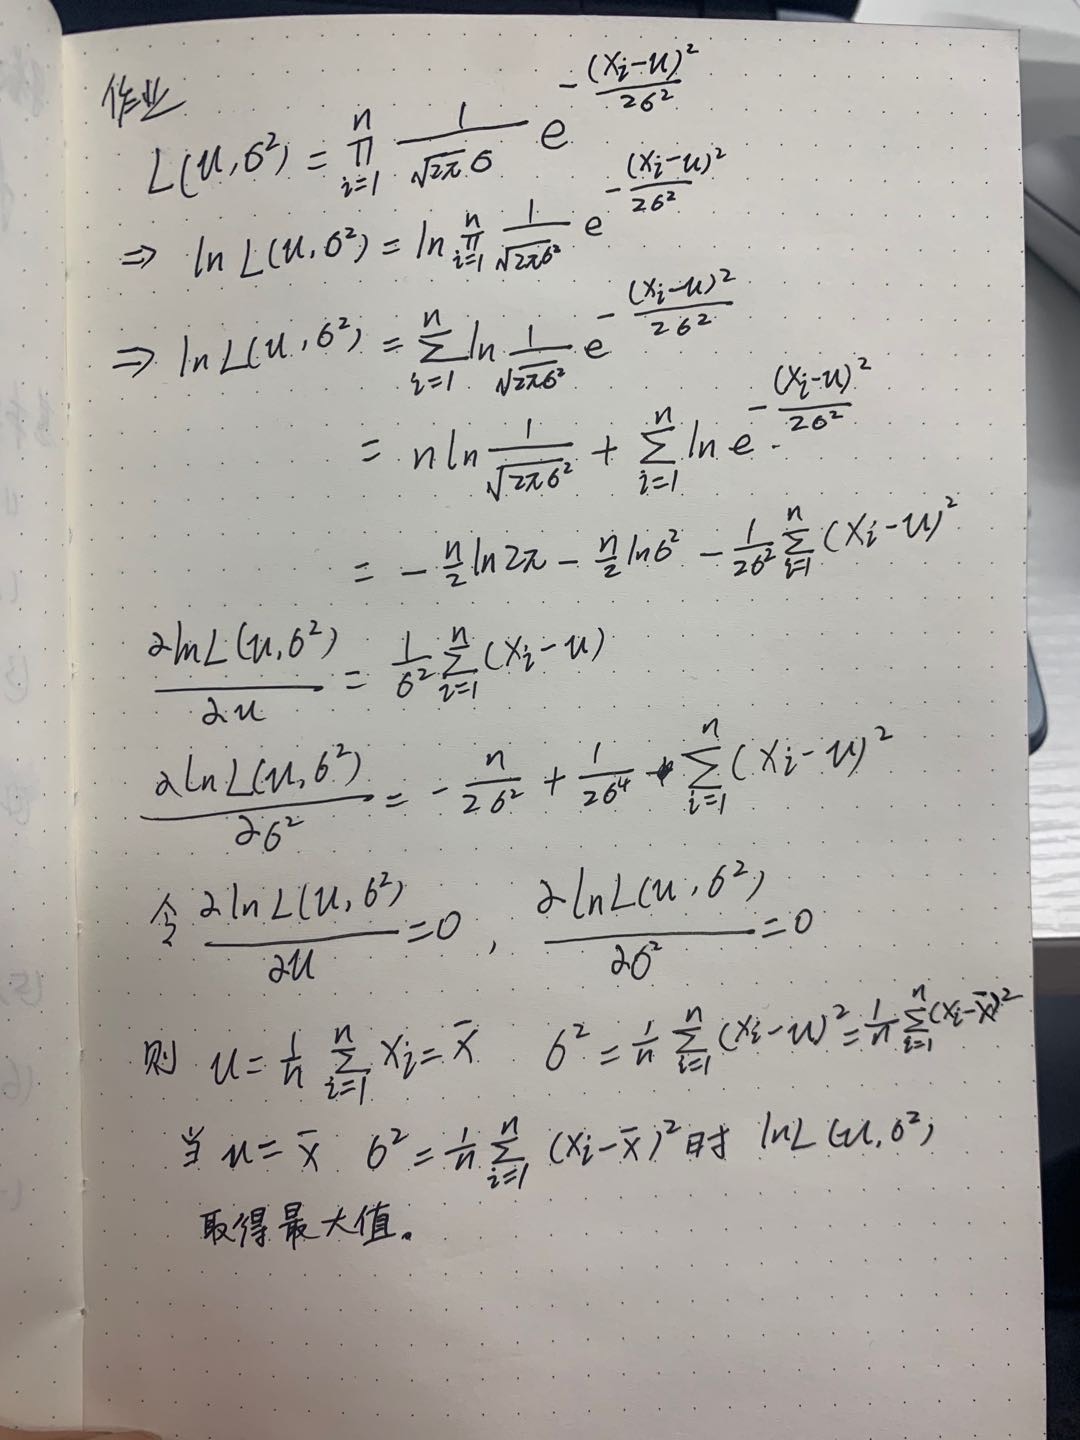 作业
L(u,σ²) = ∏_{i=1}^{n} \frac{1}{\sqrt{2π}σ} e^{-\frac{(x_i-u)^2}{2σ^2}}
⇒ ln L(u,σ²) = ln ∏_{i=1}^{n} \frac{1}{\sqrt{2πσ^2}} e^{-\frac{(x_i-u)^2}{2σ^2}}
⇒ ln L(u,σ²) = ∑_{i=1}^{n} ln \frac{1}{\sqrt{2πσ^2}} e^{-\frac{(x_i-u)^2}{2σ^2}}
= n ln \frac{1}{\sqrt{2πσ^2}} + ∑_{i=1}^{n} ln e^{-\frac{(x_i-u)^2}{2σ^2}}
= -\frac{n}{2} ln 2π - \frac{n}{2} ln σ² - \frac{1}{2σ^2} ∑_{i=1}^{n} (x_i-u)²
\frac{∂ ln L(u,σ^2)}{∂u} = \frac{1}{σ^2} ∑_{i=1}^{n} (x_i-u)
\frac{∂ ln L(u,σ^2)}{∂σ^2} = -\frac{n}{2σ^2} + \frac{1}{2σ^4} ∑_{i=1}^{n} (x_i-u)²
令 \frac{∂ ln L(u,σ^2)}{∂u} = 0, \frac{∂ ln L(u,σ^2)}{∂σ^2} = 0
则 u = \frac{1}{n} ∑_{i=1}^{n} x_i = x̄ σ² = \frac{1}{n} ∑_{i=1}^{n} (x_i-u)² = \frac{1}{n} ∑_{i=1}^{n} (x_i-x̄)²
当 u = x̄ σ² = \frac{1}{n} ∑_{i=1}^{n} (x_i-x̄)² 时 ln L(u,σ²)
取得最大值。